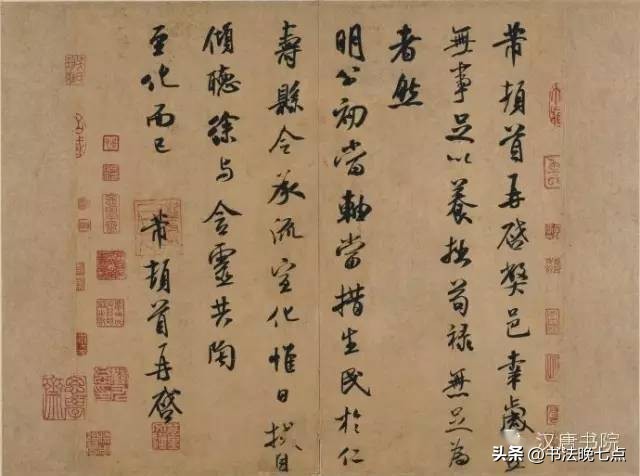 芾頓首再啓弊邑幸歲
無事足以養拙苟祿無足為
者然
明公初當軸當措生民於仁
壽縣令承流宣化惟日拭目
傾聽徐与含靈共陶
至化而已
芾頓首再啓
汉唐书院
头条 @书法晚七点